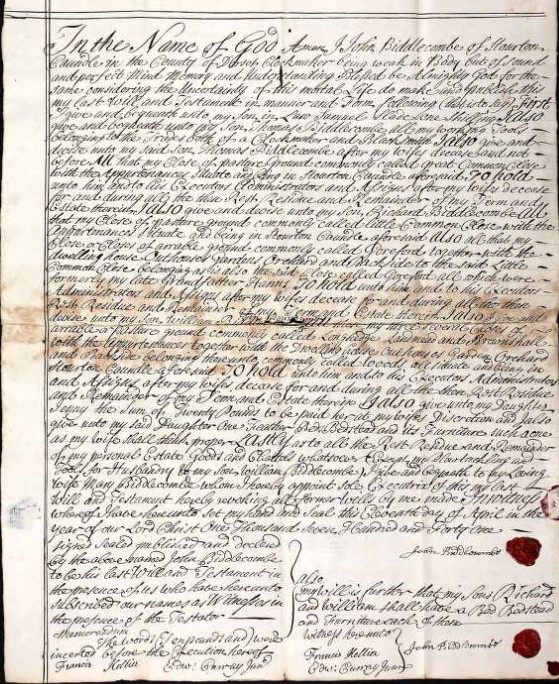 In the Name of God Amen I John Biddlecombe of Stourton
Caundle in the County of Dorset Clockmaker being weak in Body but of sound
and perfect Mind Memory and Understanding Blessed be Almighty God for the
same considering the Uncertainty of this mortal Life do make and publish this
my last Will and Testament in manner and Form following (that is to say) First
I give and bequeath unto my Son in Law Samuel Slade one Shilling I also
give and bequeath unto my Son Thomas Biddlecombe all my working Tools
belonging to the Trades both of a Clockmaker and Blacksmith I also give and
devise unto my said Son Thomas Biddlecombe after my wifes decease and not
before All that my Close of pasture Ground commonly called great Common Close
with the Appurtenances Situate and being in Stourton Caundle aforesaid To hold
unto him and to his Executors Administrators and Assigns after my wifes decease
for and during all the then Rest Residue and Remainder of my Term and
Estate therein I also give and devise unto my Son Richard Biddlecombe All
that my Close of pasture ground commonly called little Common Close with the
Appurtenances Situate and being in Stourton Caundle aforesaid Also all that my
Close or Closes of arrable ground commonly called Goreford together with the
dwelling house Outhouses Gardens Orchard and Barside to the said Little
Common Close belonging as also the said Close called Goreford all which were
formerly my late Grandfather To hold unto him and to his Executors
Administrators and Assigns after my wifes decease for and during all the then
Rest Residue and Remainder of my Term and Estate therein I also give and
devise unto my Son William my three several Closes of
arrable or pasture ground commonly called Landmear and
with the Appurtenances together with the Dwelling house Outhouses Garden Orchard
and Barside belonging thereunto commonly called Woods all Situate and being in
Stourton Caundle aforesaid To hold unto him and to his Executors Administrators
and Assigns after my wifes decease for and during all the then Rest Residue
and Remainder of my Term and Estate therein I also give unto my Daughter
Jenny the Sum of Twenty Pounds to be paid her at my wifes Discretion and I also
give unto my said Daughter One Feather Bed Bedstead and its Furniture such a one
as my wife shall think proper Lastly as to all the Rest Residue and Remainder
of my personal Estate Goods and Chattels whatsoever (except my
Tools for Husbandry to my Son William Biddlecombe) I give and bequeath to my Loving
wife Mary Biddlecombe whom I hereby appoint Sole Executrix of this my last
Will and Testament hereby revoking all former Wills by me made In witness
whereof I have hereunto set my hand and Seal this Eleventh day of April in the
year of our Lord Christ One Thousand Seven Hundred and Forty One
Signed Sealed published and declared
by the above named John Biddlecombe
to be his last Will and Testament in
the presence of Us who have hereunto
subscribed our names as Witnesses in
the presence of the Testator
Memorandum
The words (Ten pounds and) were
inserted before the Execution hereof
Francis Mellin
Edwd: Curray Junr
John Biddlecombe
also
my will is further that my Sons Richard
and William shall have a Bed Bedstead
and Furniture each of them
Witness hereunto
Francis Mellin
Edwd: Curray Junr
John Biddlecombe